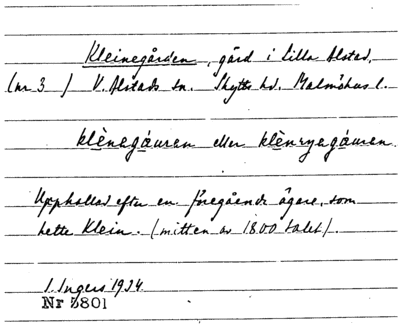 Kleinegården, gård i Lilla Alstad,
(nr 3) V. Alstads sn. Skytts hd. Malmöhus l.
klènegáuren eller klènryegáuren.
Upphallad efter en föregående ägare, som
hette Klein. (mitten av 1800 talet).
I. Ingers 1934.
Nr 5801